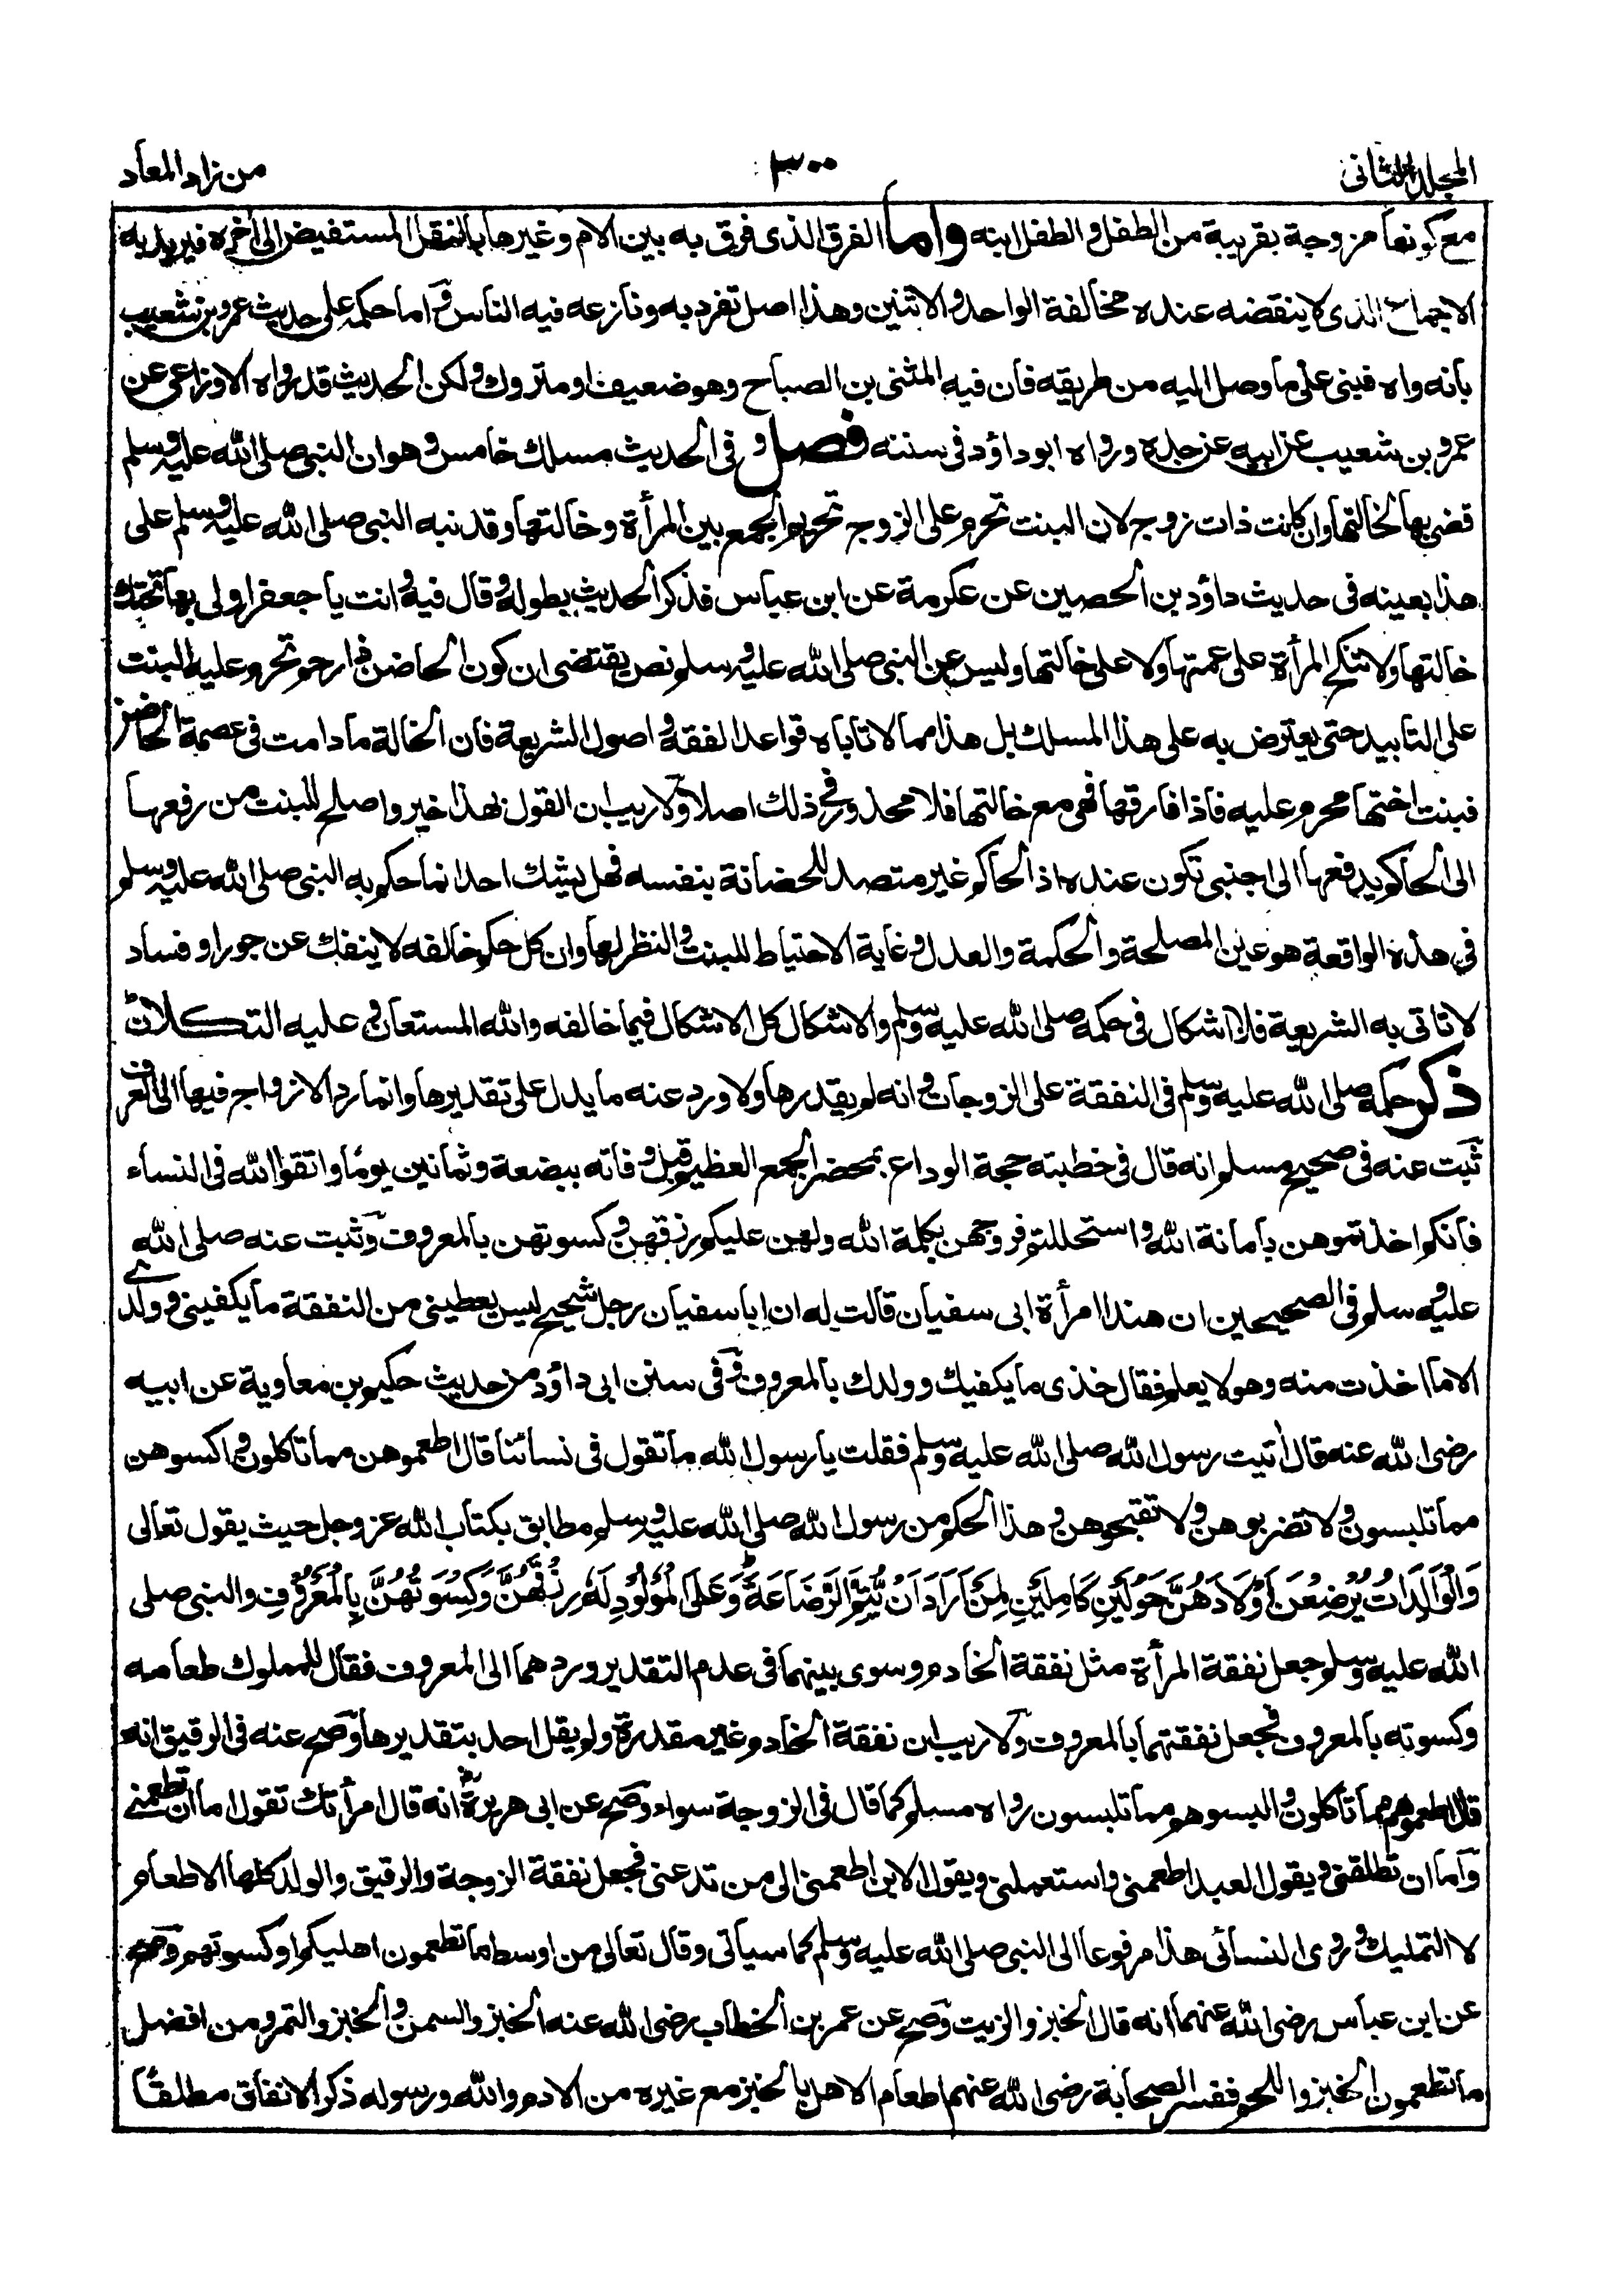 المجلد الثانى
٣٠٠
من زاد المعاد
مع كونها مزوجة بقريبة من الطفل والطفل ابنه واما الفرق الذى فرق به بين الام وغيرها بالنقل المستفيض الى أخره فيريد به
الاجماع الذى لا ينقضه عنده مخالفة الواحد والاثنين وهذا اصل تفرد به ونازعه فيه الناس واما حكمه على حديث عمرو بن شعيب
بانه واه فبنى على ما وصل اليه من طريقه فان فيه المثنى بن الصباح وهو ضعيف او متروك ولكن الحديث قد رواه الاوزاعى عن
عمرو بن شعيب عن ابيه عن جده ورواه ابو داؤد فى سننه فصل وفى الحديث مسلك خامس وهو ان النبى صلى الله عليه وسلم
قضى بها لخالتها وان كانت ذات زوج لان البنت تحرم على الزوج تحريم الجمع بين المرأة وخالتها وقد نبه النبى صلى الله عليه وسلم على
هذا بعينه فى حديث داؤد بن الحصين عن عكرمة عن ابن عباس فذكر الحديث بطوله وقال فيه وانت يا جعفر اولى بها تحتك
خالتها ولا تنكح المرأة على عمتها ولا على خالتها وليس عن النبى صلى الله عليه وسلم نص يقتضى ان كون الحاضن ذا رحم تحرم عليه البنت
على التابيد حتى يعترض به على هذا المسلك بل هذا مما لا تاباه قواعد الفقه واصول الشريعة فان الخالة ما دامت فى عصمة الحاضن
فبنت اختها محرم عليه فاذا فارقها فهى مع خالتها فلا محذور فى ذلك اصلا ولا ريب ان القول بهذا خير واصلح للبنت من رفعها
الى الحاكم يدفعها الى اجنبى تكون عنده اذ الحاكم غير متصد للحضانة بنفسه فهل يشك احد انما حكم به النبى صلى الله عليه وسلم
فى هذه الواقعة هو عين المصلحة والحكمة والعدل وغاية الاحتياط للبنت والنظر لها وان كل حكم خالفه لا ينفك عن جور او فساد
لا تاتى به الشريعة فلا اشكال فى حكمه صلى الله عليه وسلم والاشكال كل الاشكال فيما خالفه والله المستعان وعليه التكلان
ذكر حكمه صلى الله عليه وسلم فى النفقة على الزوجات وانه لم يقدرها ولا ورد عنه ما يدل على تقديرها وانما رد الازواج فيها الى العرف
ثبت عنه فى صحيح مسلم انه قال فى خطبته حجة الوداع بمحضر الجمع العظيم قبل وفاته ببضعة وثمانين يوما واتقوا الله فى النساء
فانكم اخذتموهن بأمانة الله واستحللتم فروجهن بكلمة الله ولهن عليكم رزقهن وكسوتهن بالمعروف وثبت عنه صلى الله
عليه وسلم فى الصحيحين ان هندا امرأة ابى سفيان قالت له ان ابا سفيان رجل شحيح ليس يعطينى من النفقة ما يكفينى وولدى
الا ما اخذت منه وهو لا يعلم فقال خذى ما يكفيك وولدك بالمعروف وفى سنن ابى داؤد من حديث حكيم بن معاوية عن ابيه
رضى الله عنه قال أتيت رسول الله صلى الله عليه وسلم فقلت يا رسول الله ما تقول فى نسائنا قال اطعموهن مما تاكلون واكسوهن
مما تلبسون ولا تضربوهن ولا تقبحوهن وهذا الحكم من رسول الله صلى الله عليه وسلم مطابق بكتاب الله عز وجل حيث يقول تعالى
وَالْوَالِدَاتُ يُرْضِعْنَ أَوْلَادَهُنَّ حَوْلَيْنِ كَامِلَيْنِ لِمَنْ أَرَادَ أَنْ يُّتِمَّ الرَّضَاعَةَ وَعَلَى الْمَوْلُوْدِ لَهٗ رِزْقُهُنَّ وَكِسْوَتُهُنَّ بِالْمَعْرُوْفِ والنبى صلى
الله عليه وسلم جعل نفقة المرأة مثل نفقة الخادم وسوى بينهما فى عدم التقدير وردهما الى المعروف فقال للمملوك طعامه
وكسوته بالمعروف فجعل نفقتهما بالمعروف ولا ريب ان نفقة الخادم غير مقدرة ولم يقل احد بتقديرها وصح عنه فى الرقيق انه
قال اطعموهم مما تأكلون والبسوهم مما تلبسون رواه مسلم كما قال فى الزوجة سواء وصح عن ابى هريرة انه قال امرأتك تقول اما ان تطعمنى
واما ان تطلقنى ويقول العبد اطعمنى واستعملنى ويقول الابن اطعمنى الى من تدعنى فجعل نفقة الزوجة والرقيق والولد كلها الاطعام
لا التمليك وروى النسائى هذا مرفوعا الى النبى صلى الله عليه وسلم كما سيأتى وقال تعالى من اوسط ما تطعمون اهليكم او كسوتهم وصح
عن ابن عباس رضى الله عنهما انه قال الخبز والزيت وصح عن عمر بن الخطاب رضى الله عنه الخبز والسمن والخبز والتمر ومن افضل
ما تطعمون الخبز واللحم ففسر الصحابة رضى الله عنهم اطعام الاهل بالخبز مع غيره من الادم والله ورسوله ذكر الانفاق مطلقًا